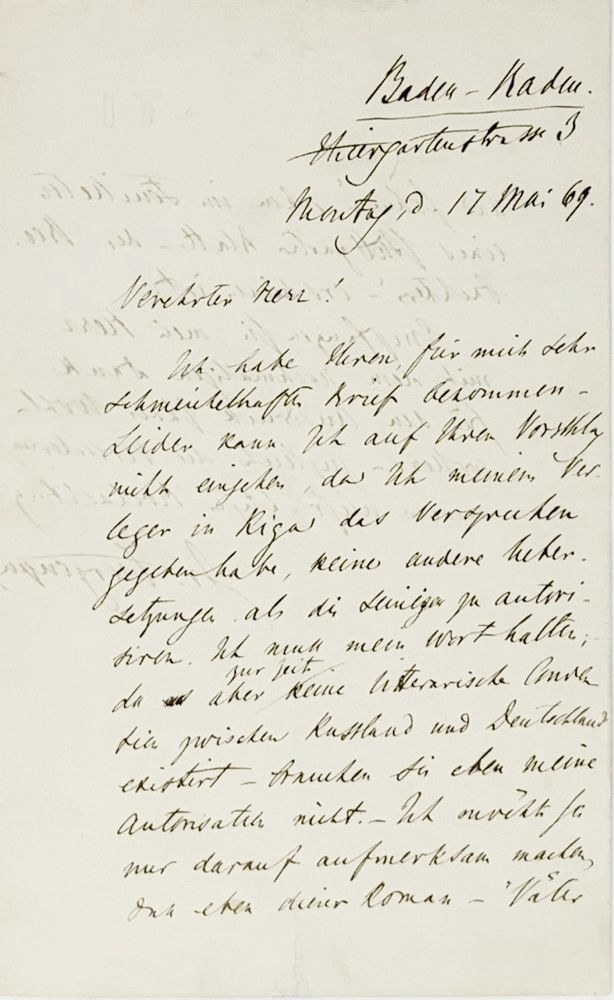 Baden-Baden.
Thiergartenstrasse 3
Montag, d. 17 Mai 69.
Verehrter Herr!
Ich habe Ihren, für mich sehr
schmeichelhaften Brief bekommen –
Leider kann Ich auf Ihren Vorschlag
nicht eingehen, da Ich meinem Ver-
leger in Riga das Versprechen
gegeben habe, keine andere Ueber-
setzungen als die seinigen zu autori-
siren. Ich muss mein Wort halten;
zur Zeit
da aber keine litterarische Conven-
tion zwischen Russland und Deutschland
existirt – brauchen Sie eben meine
Autorisation nicht. – Ich möchte Sie
nur darauf aufmerksam machen,
dass eben dieser Roman – "Väter